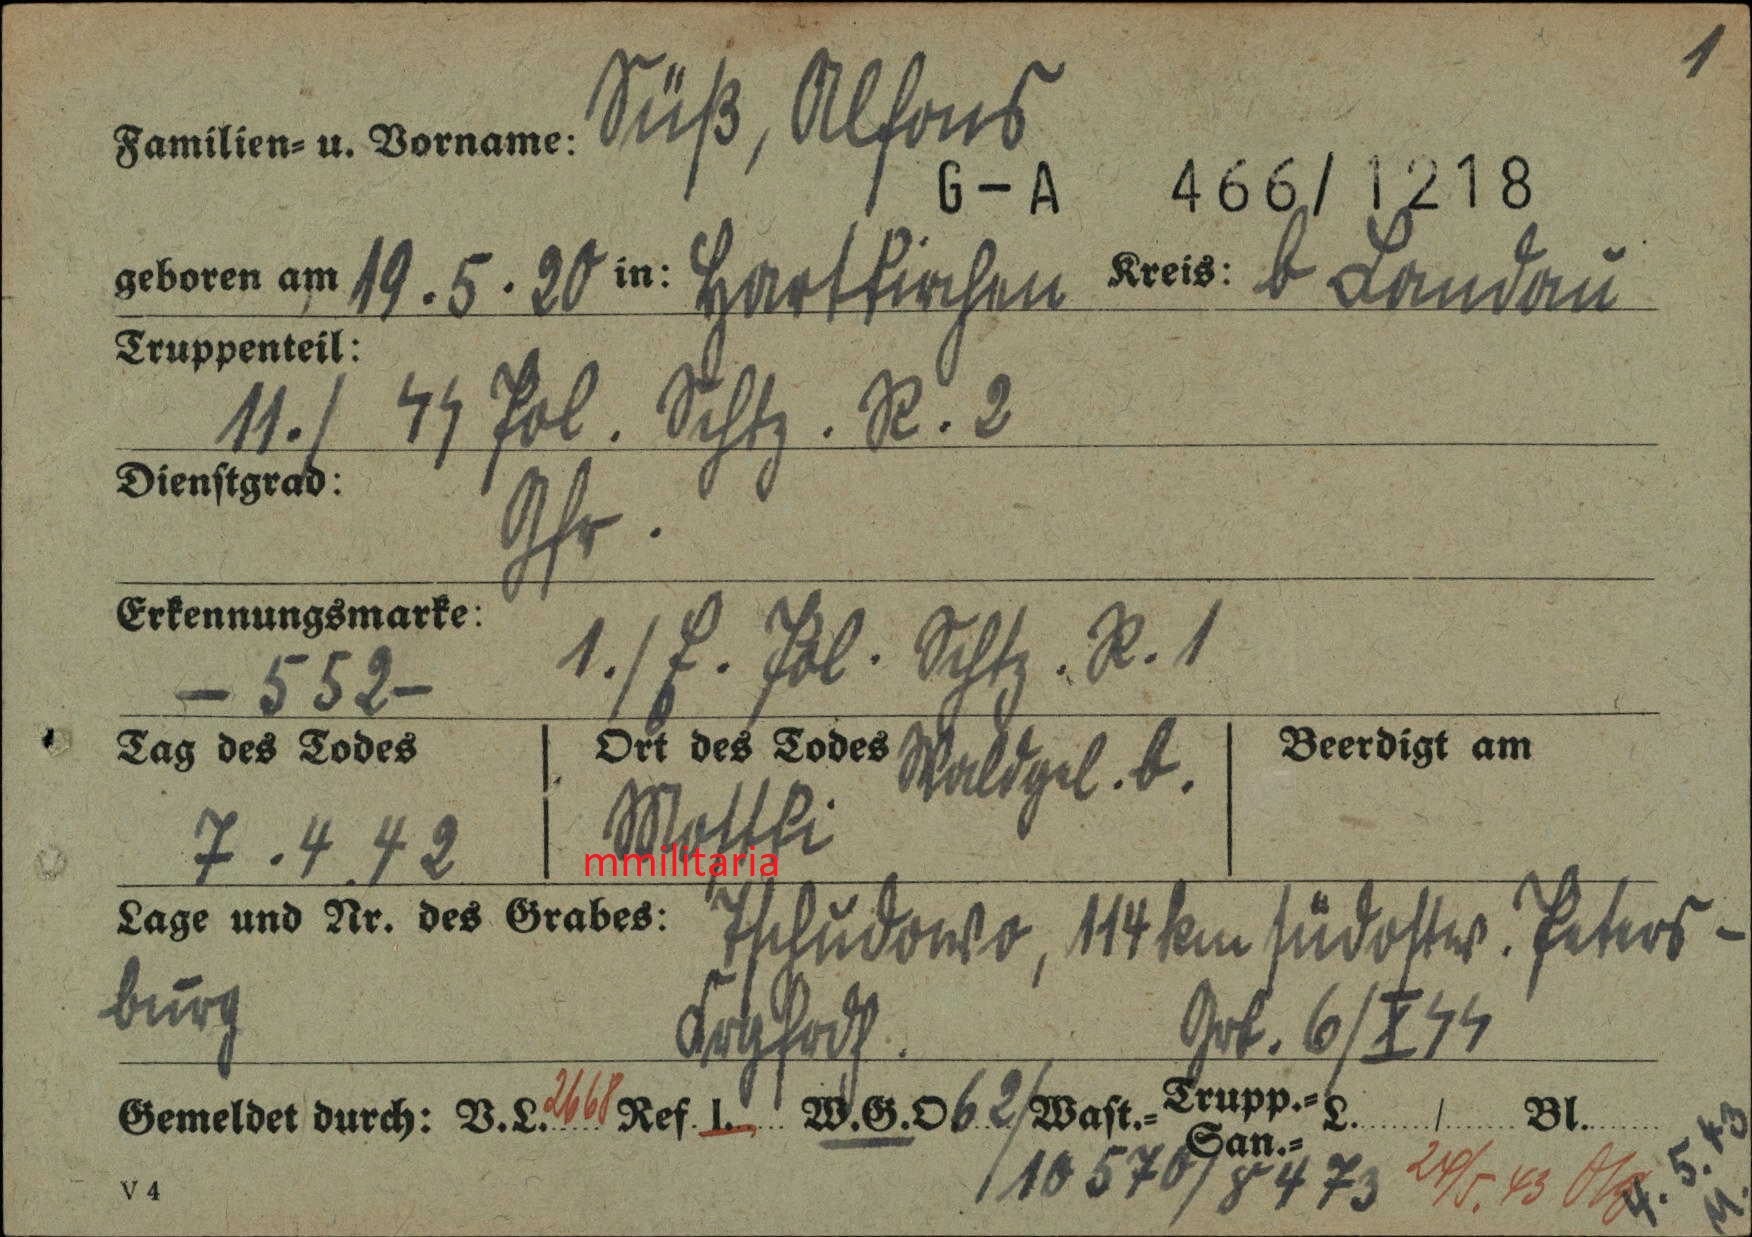 1
Familien= u. Vorname: Süß, Alfons
G-A 466/1218
geboren am 19.5.20 in: Hartkirchen Kreis: b Landau
Truppenteil:
11./ ϟϟ Pol. Schtz. R. 2
Dienstgrad:
Gfr.
Erkennungsmarke:
-552- 1./E. Pol. Schtz. R. 1
Tag des Todes Ort des Todes Waldgel. b. Beerdigt am
7.4.42 Mostki
mmilitaria
Lage und Nr. des Grabes: Tschudowo, 114 km südostw. Peters-
burg Krgfrdhf. Grb. 6/X ϟϟ
Gemeldet durch: V.L. 2668 Ref. 1. W.G.O 62/ Wast.= Trupp.= L. / Bl.
San.=
V 4 /10570/8473 24/5.43 4.5.43